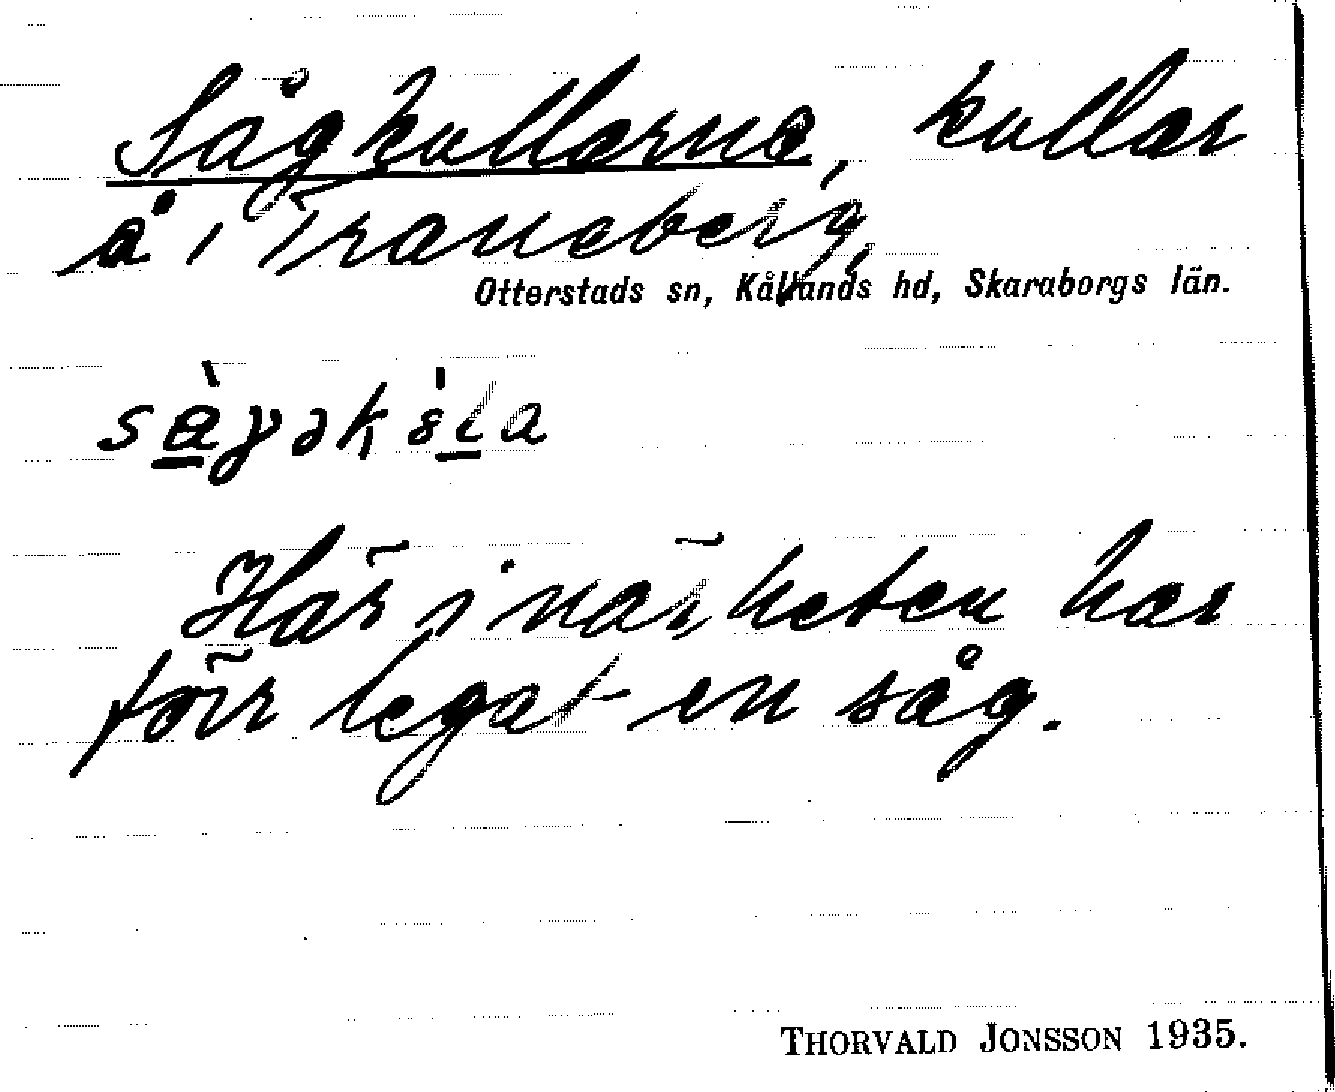 Sågkullarna, kullar
å 1 Traneberg,
Otterstads sn, Kållands hd, Skaraborgs län.
Här i närheten har
förr legat en såg.
THORVALD JONSSON 1935.